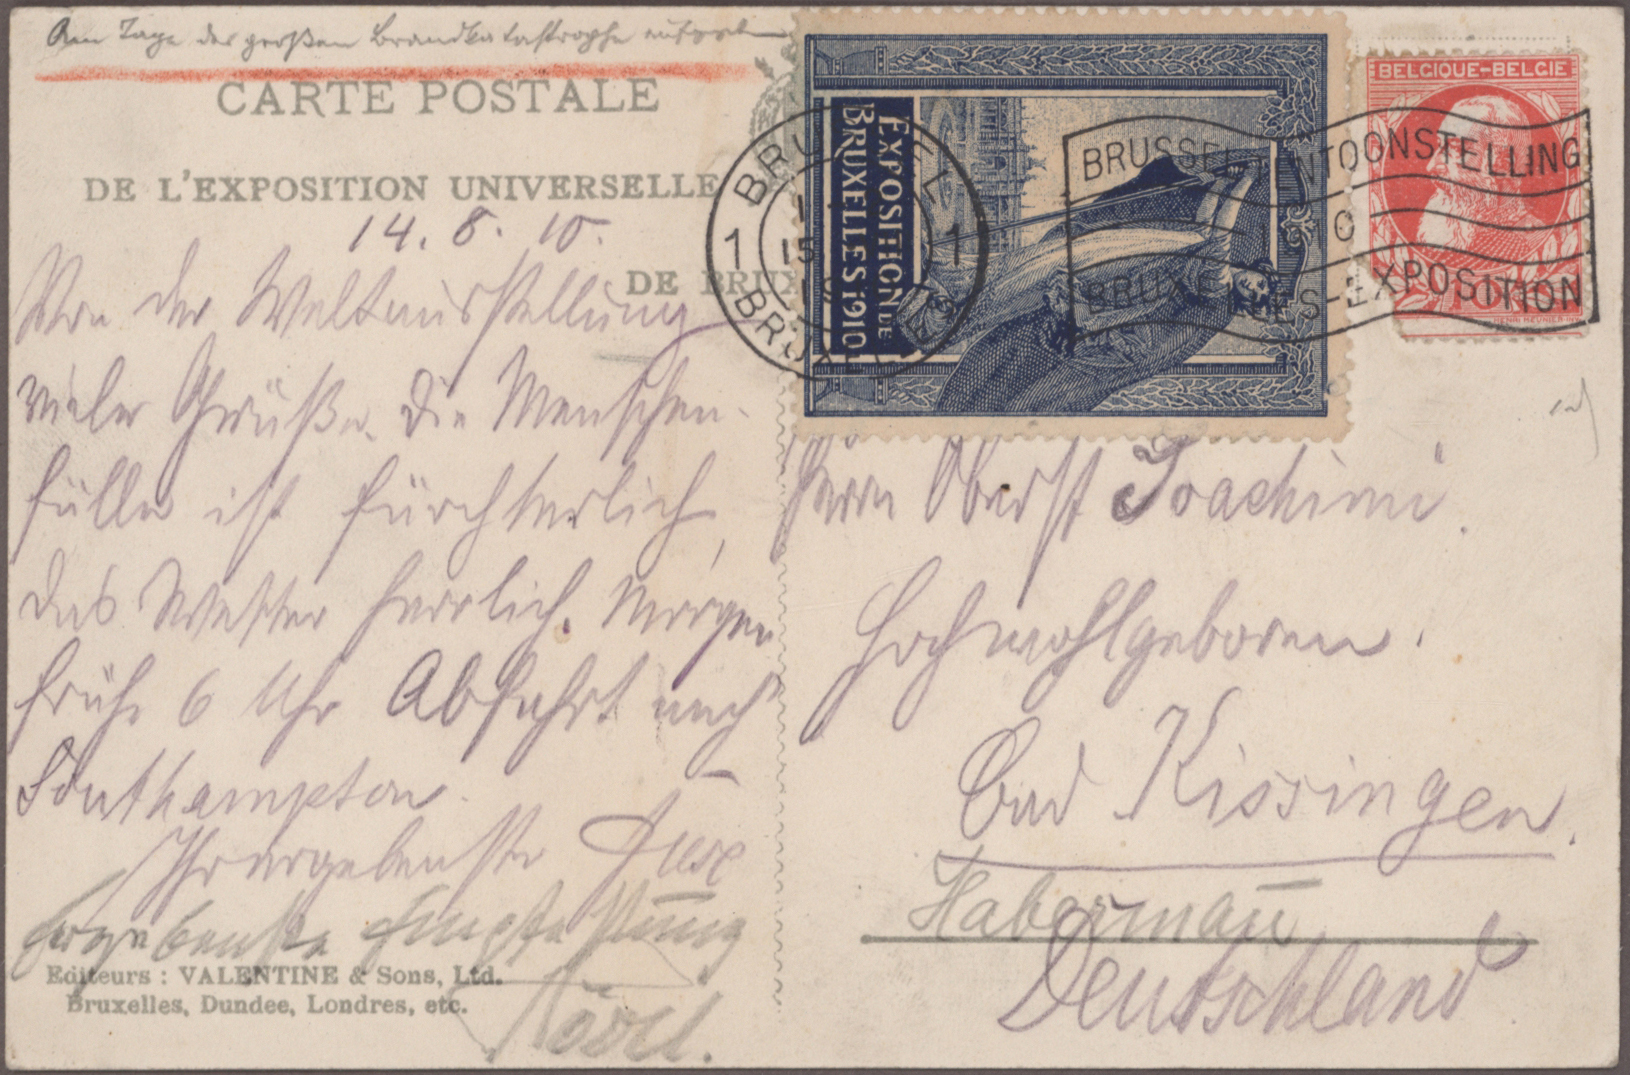 Am Tage der großen Brandkatastrophe
CARTE POSTALE
DE L'EXPOSITION UNIVERSELLE
DE BRUX
14. 8. 10.
Von der Weltausstellung
viele Grüße. Die Menschen-
fülle ist fürchterlich,
das Wetter herrlich. Morgen
früh 6 Uhr Abfahrt nach
Southampton.
Ihr ergebenster
Ergebenste Empfehlung
Editeurs : VALENTINE & Sons, Ltd.
Bruxelles, Dundee, Londres, etc.
EXPOSITION DE
BRUXELLES 1910
BRUSSEL
1 15 1
BRUXELLES
BELGIQUE-BELGIE
BRUSSEL TENTOONSTELLING
BRUXELLES-EXPOSITION
10
HENRI MEUNIER
Herrn Oberst Joachimi.
Hochwohlgeboren.
Bad Kissingen.
Habermann
Deutschland